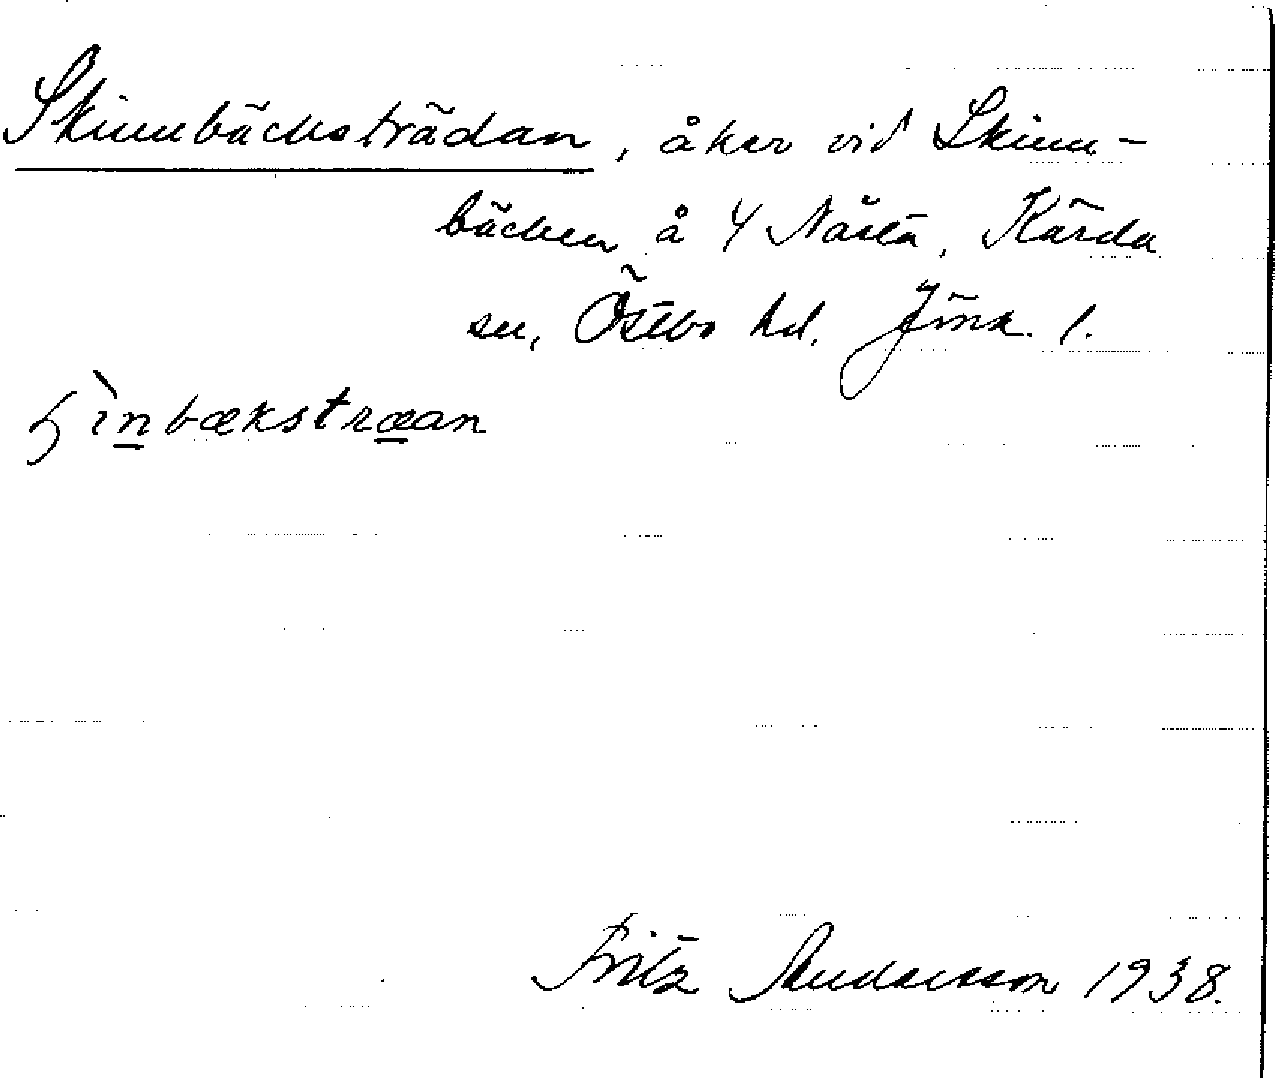 Skinnbäcksträdan, åker vid Skinn-
bäcken å 4 Nästa, Kärda
sn, Östbo hd. Jönk. l.
ɧìn̲bækstræ̲an
Fritz Andersson 1938.